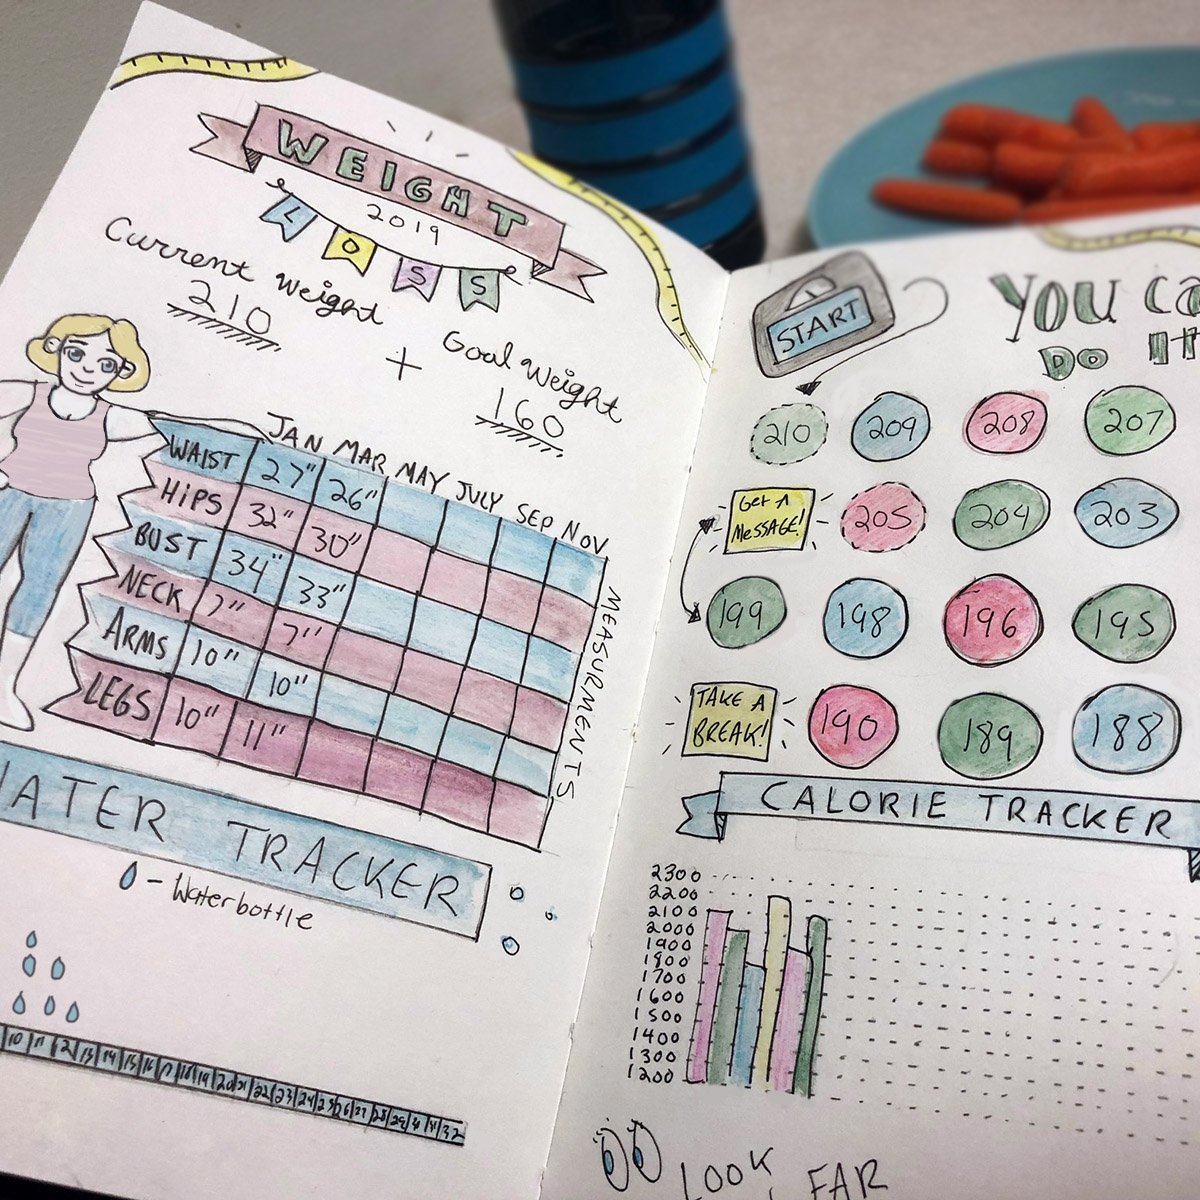 WEIGHT
2019
LOSS
Current Weight
210
+
Goal Weight
160
JAN MAR MAY JULY SEP NOV
WAIST 27" 26"
HIPS 32" 30"
BUST 34" 33"
NECK 7" 7"
ARMS 10" 10"
LEGS 10" 11"
MEASURMENTS
ATER TRACKER
- Waterbottle
10 11 12 13 14 15 16 17 18 19 20 21 22 23 24 25 26 27 28 29
START
YOU CA
DO IT
210 209 208 207
GET A
MESSAGE!
205 204 203
199 198 196 195
TAKE A
BREAK!
190 189 188
CALORIE TRACKER
2300
2200
2100
2000
1900
1800
1700
1600
1500
1400
1300
1200
LOOK
FAR